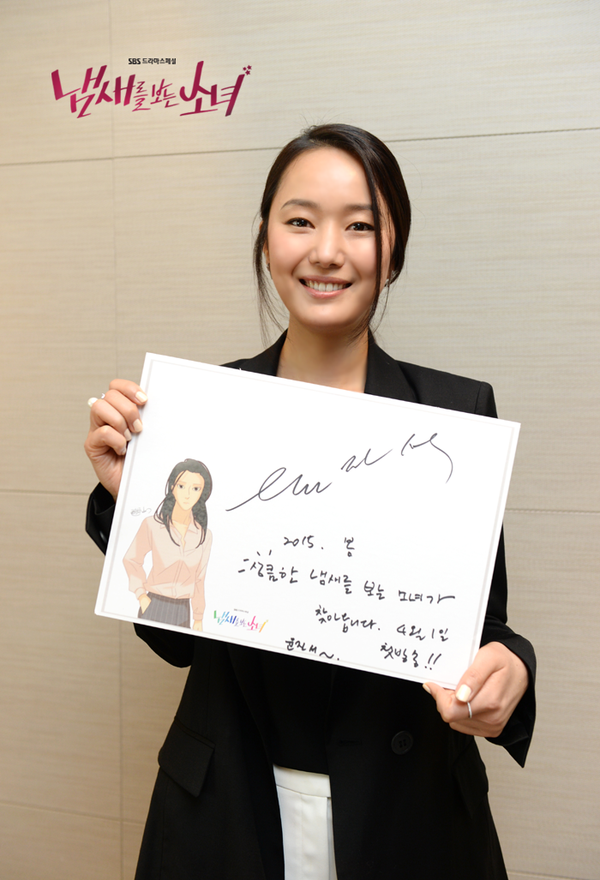 SBS 드라마스페셜
냄새를 보는 소녀
2015. 봄
상큼한 냄새를 보는 소녀가
찾아옵니다. 4월 1일
윤진서~. 첫방송!!
냄새를 보는 소녀